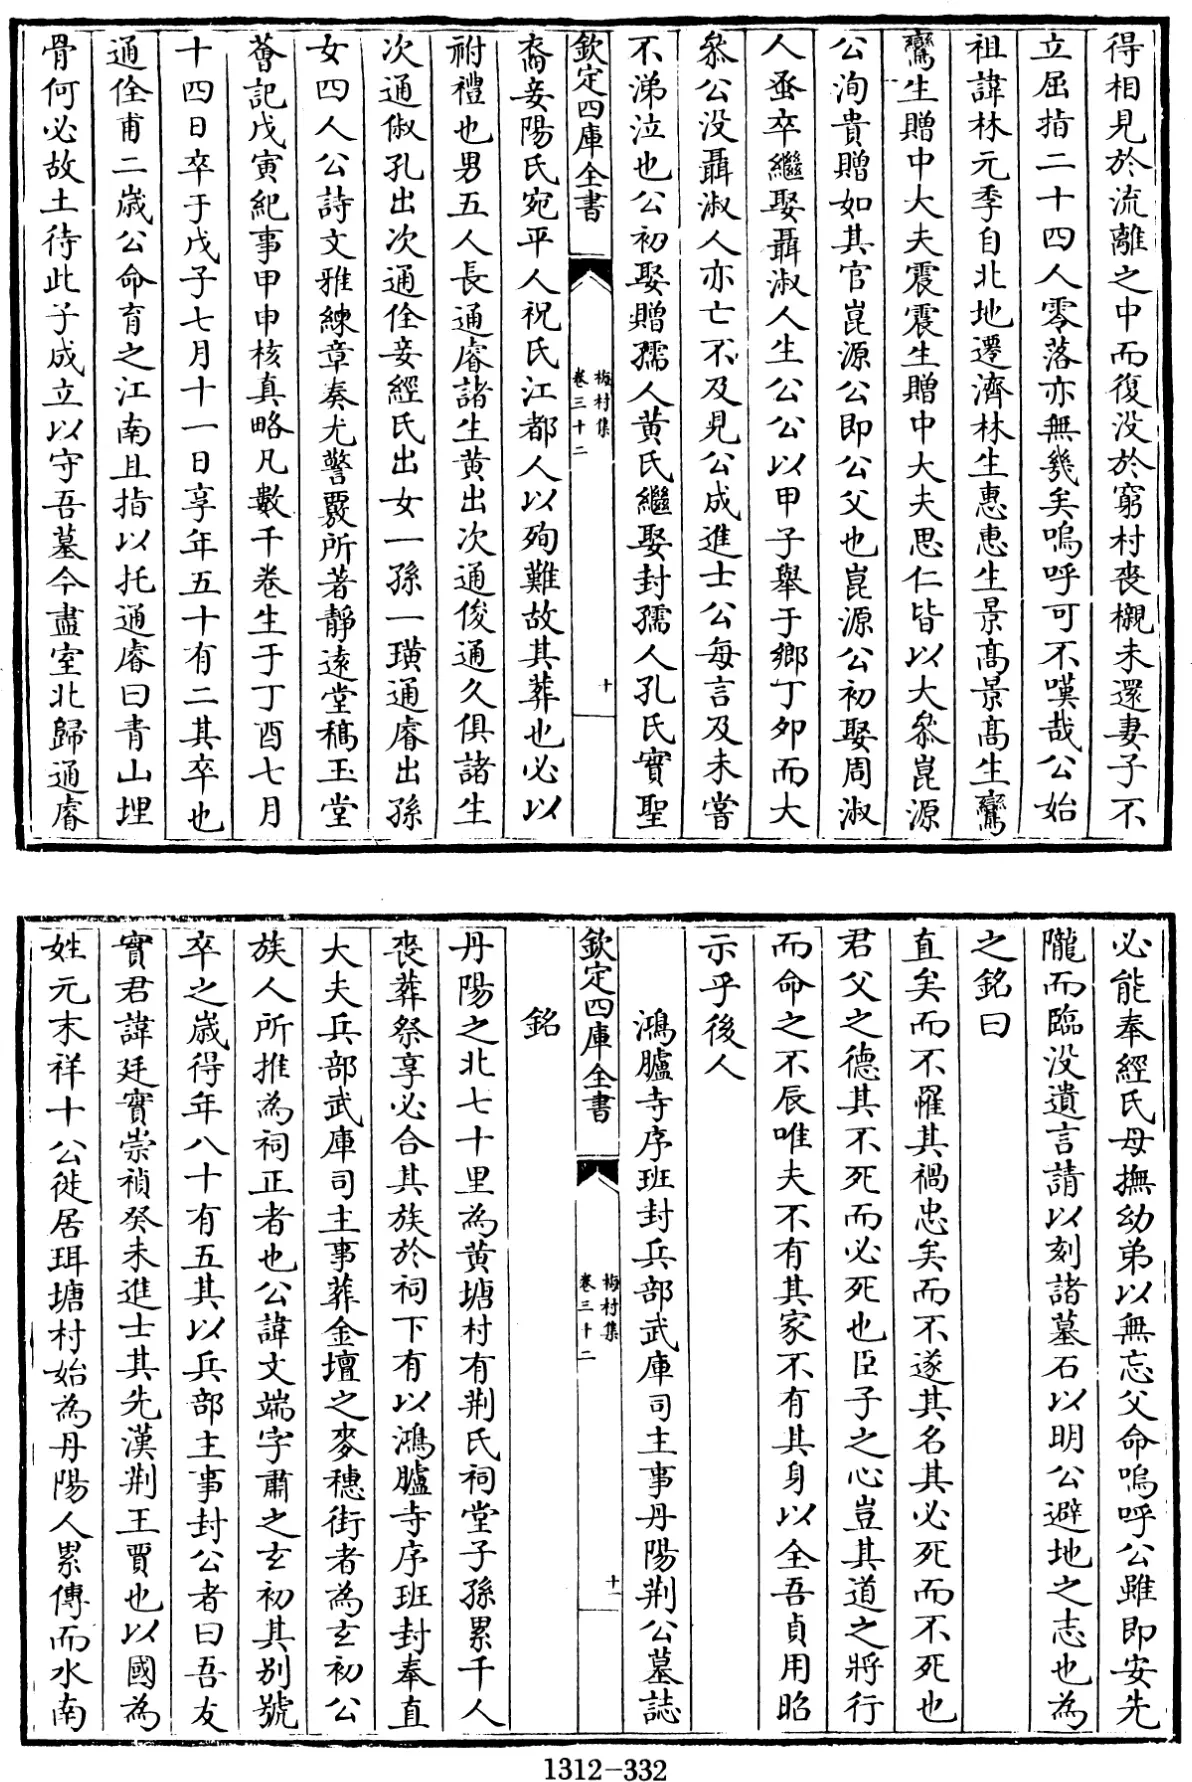 得相見於流離之中而復没於窮村喪櫬未還妻子不
立屈指二十四人零落亦無幾矣嗚呼可不嘆哉公始
祖諱林元季自北地遷濟林生惠惠生景髙景髙生鸞
鸞生贈中大夫震震生贈中大夫思仁皆以大叅崑源
公洵貴贈如其官崑源公即公父也崑源公初娶周淑
人蚤卒繼娶聶淑人生公公以甲子舉于鄉丁夘而大
叅公没聶淑人亦亡不及見公成進士公每言及未嘗
不涕泣也公初娶贈孺人黄氏繼娶封孺人孔氏實聖
欽定四庫全書
梅村集
卷三十二
十
裔妾陽氏宛平人祝氏江都人以殉難故其葬也必以
祔禮也男五人長通睿諸生黄出次通俊通久俱諸生
次通俶孔出次通佺妾經氏出女一孫一璜通睿出孫
女四人公詩文雅練章奏尤警覈所著靜逺堂稿玉堂
薈記戊寅紀事甲申核真略凡數千卷生于丁酉七月
十四日卒于戊子七月十一日享年五十有二其卒也
通佺甫二歲公命育之江南且指以托通睿曰青山埋
骨何必故土待此子成立以守吾墓今盡室北歸通睿
必能奉經氏母撫幼弟以無忘父命嗚呼公雖即安先
隴而臨没遺言請以刻諸墓石以明公避地之志也為
之銘曰
直矣而不罹其禍忠矣而不遂其名其必死而不死也
君父之德其不死而必死也臣子之心豈其道之將行
而命之不辰唯夫不有其家不有其身以全吾貞用昭
示乎後人
鴻臚寺序班封兵部武庫司主事丹陽荆公墓誌
欽定四庫全書
梅村集
卷三十二
十一
銘
丹陽之北七十里為黄塘村有荆氏祠堂子孫累千人
喪葬祭享必合其族於祠下有以鴻臚寺序班封奉直
大夫兵部武庫司主事葬金壇之麥穗街者為玄初公
族人所推為祠正者也公諱文端字肅之玄初其别號
卒之歲得年八十有五其以兵部主事封公者曰吾友
實君諱廷實崇禎癸未進士其先漢荆王賈也以國為
姓元末祥十公徙居珥塘村始為丹陽人累傳而水南
1312-332